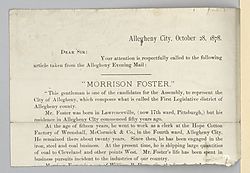 Allegheny City, October 28, 1878.
DEAR SIR:
Your attention is respectfully called to the following
article taken from the Allegheny Evening Mail:
"MORRISON FOSTER."
"This gentleman is one of the candidates for the Assembly, to represent the
City of Allegheny, which composes what is called the First Legislative district of
Allegheny county.
Mr. Foster was born in Lawrenceville, (now 17th ward, Pittsburgh,) but his
residence in Allegheny City commenced fifty years ago.
At the age of fifteen years, he went to work as a clerk at the Hope Cotton
Factory of McCormick & Co., in the Fourth ward, Allegheny City.
He remained there about twenty years. Since then, he has been engaged in the
iron, steel and coal business. At the present time, he is shipping large quantities
of coal to Cleveland and other points West. Mr. Foster's life has been spent in
business pursuits incident to the industries of our country.